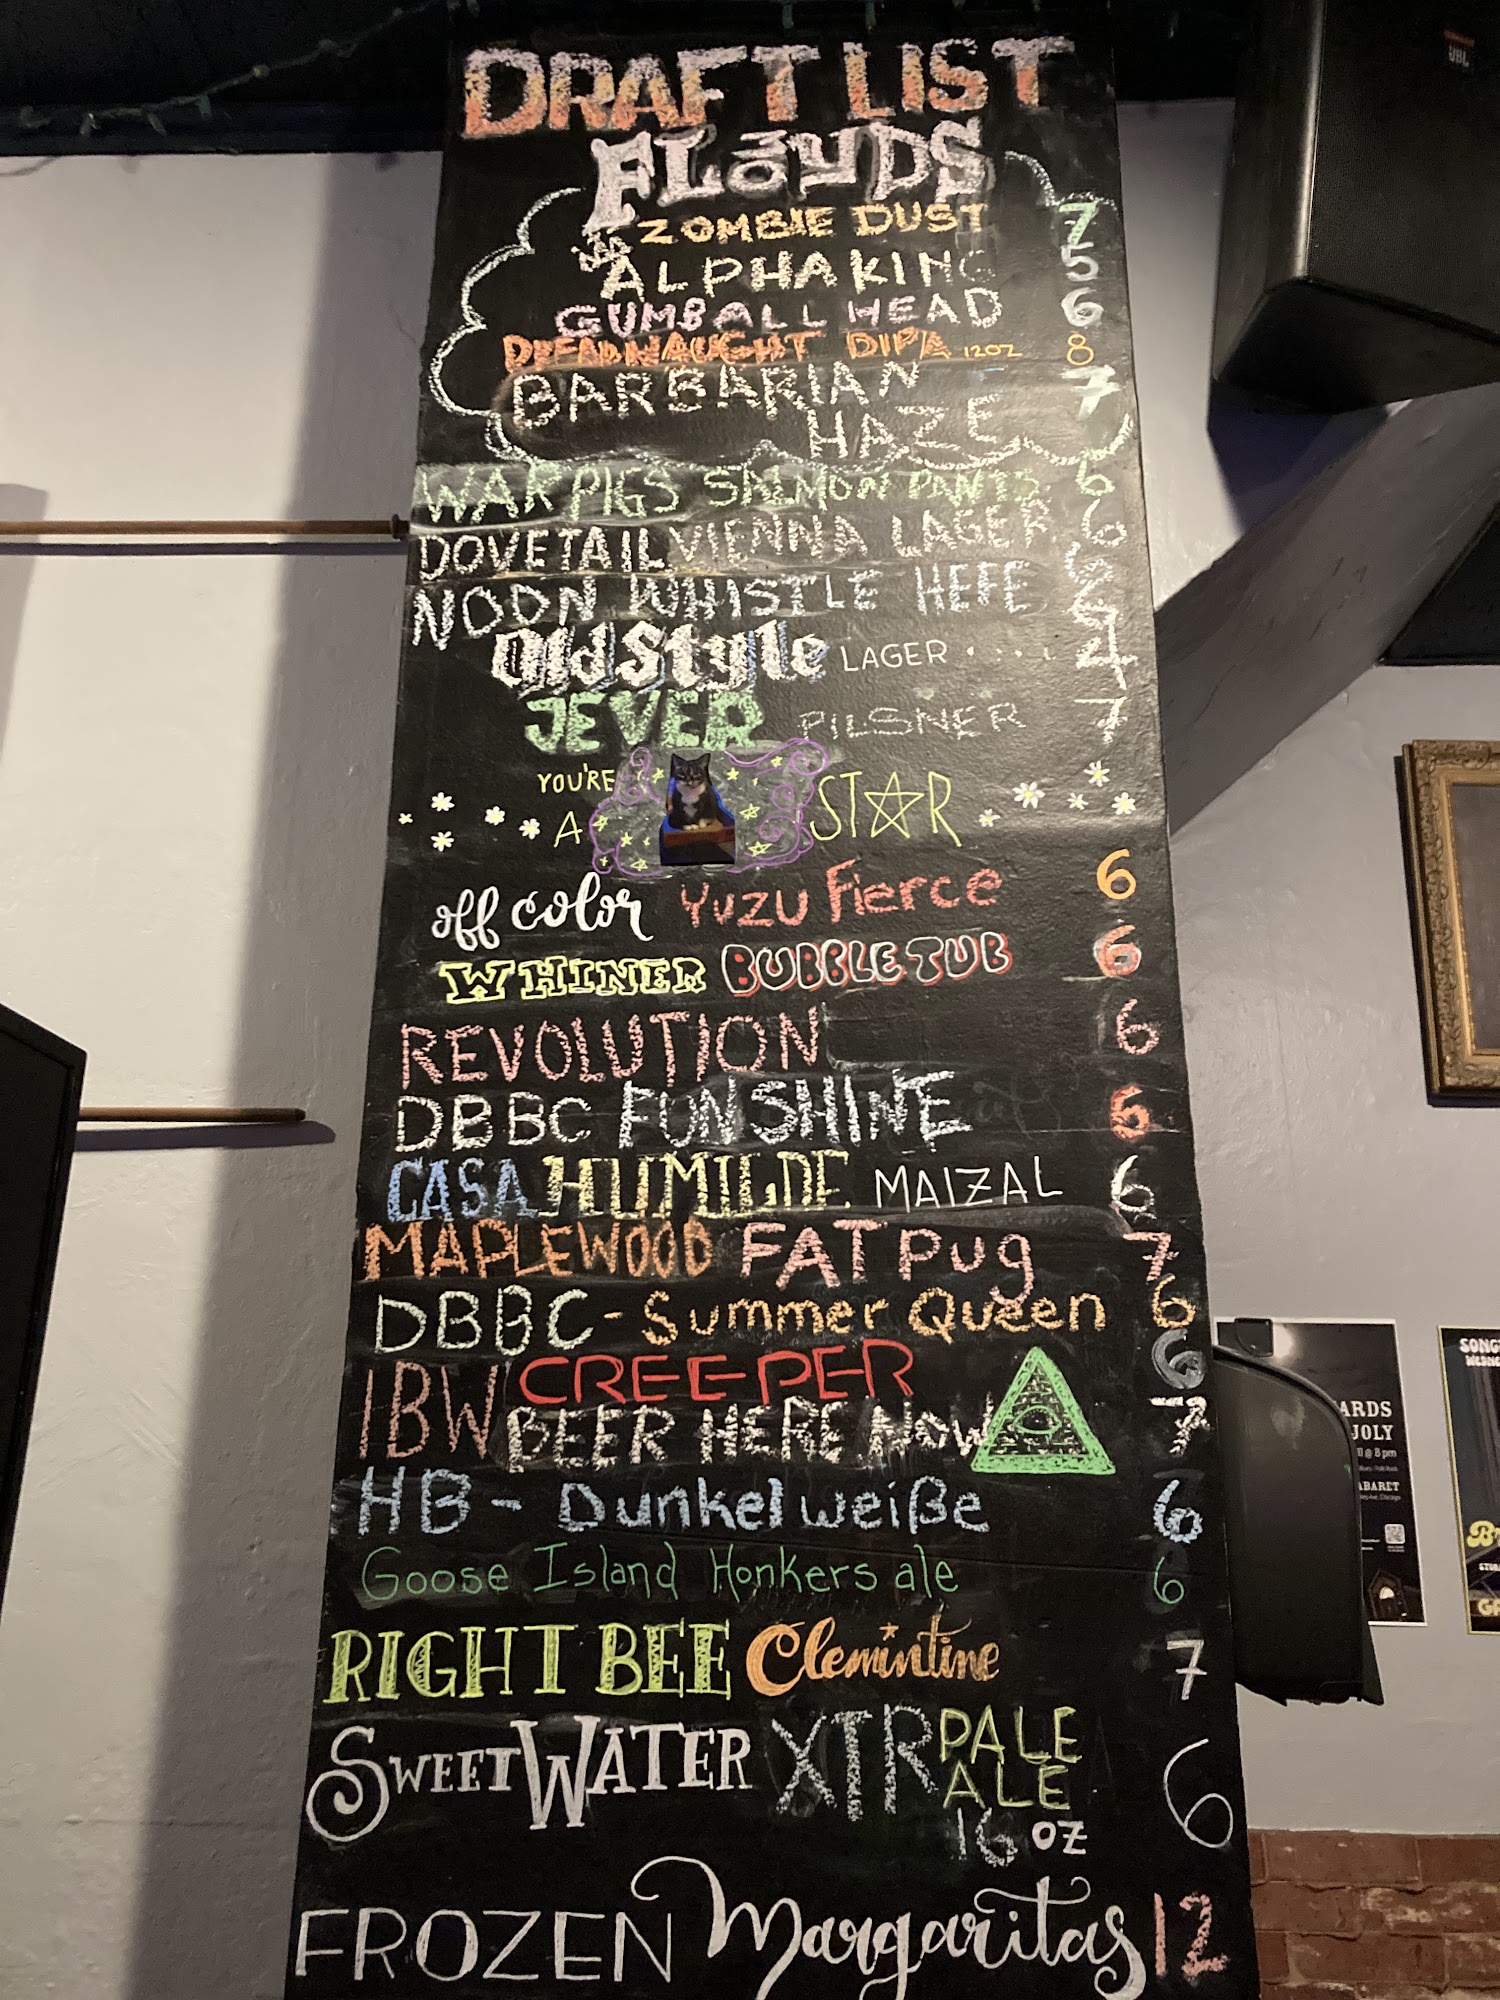 DRAFT LIST
FLOYDS
3
ZOMBIE DUST 7
ALPHA KING 5
GUMBALL HEAD 6
DREADNAUGHT DIPA 12OZ 8
BARBARIAN 7
HAZE
WARPIGS SALMON PANTS 6
DOVETAIL VIENNA LAGER 6
NOON WHISTLE HEFE 6
Old Style LAGER 4
JEVER PILSNER 7
YOU'RE
A STAR
off color Yuzu Fierce 6
WHINER BUBBLE TUB 6
REVOLUTION 6
DBBC FUNSHINE 6
CASA HUMILDE MAIZAL 6
MAPLEWOOD FAT Pug 7
DBBC - Summer Queen 6
IBW CREEPER 6
BEER HERE NOW 7
HB - Dunkelweiße 6
Goose Island Honkers ale 6
RIGHT BEE Clemintine 7
SWEETWATER XTR PALE ALE 6
16 oz
FROZEN Margaritas 12
JBL
ARDS
JOLY
@ 8 pm
ABARET
SONG